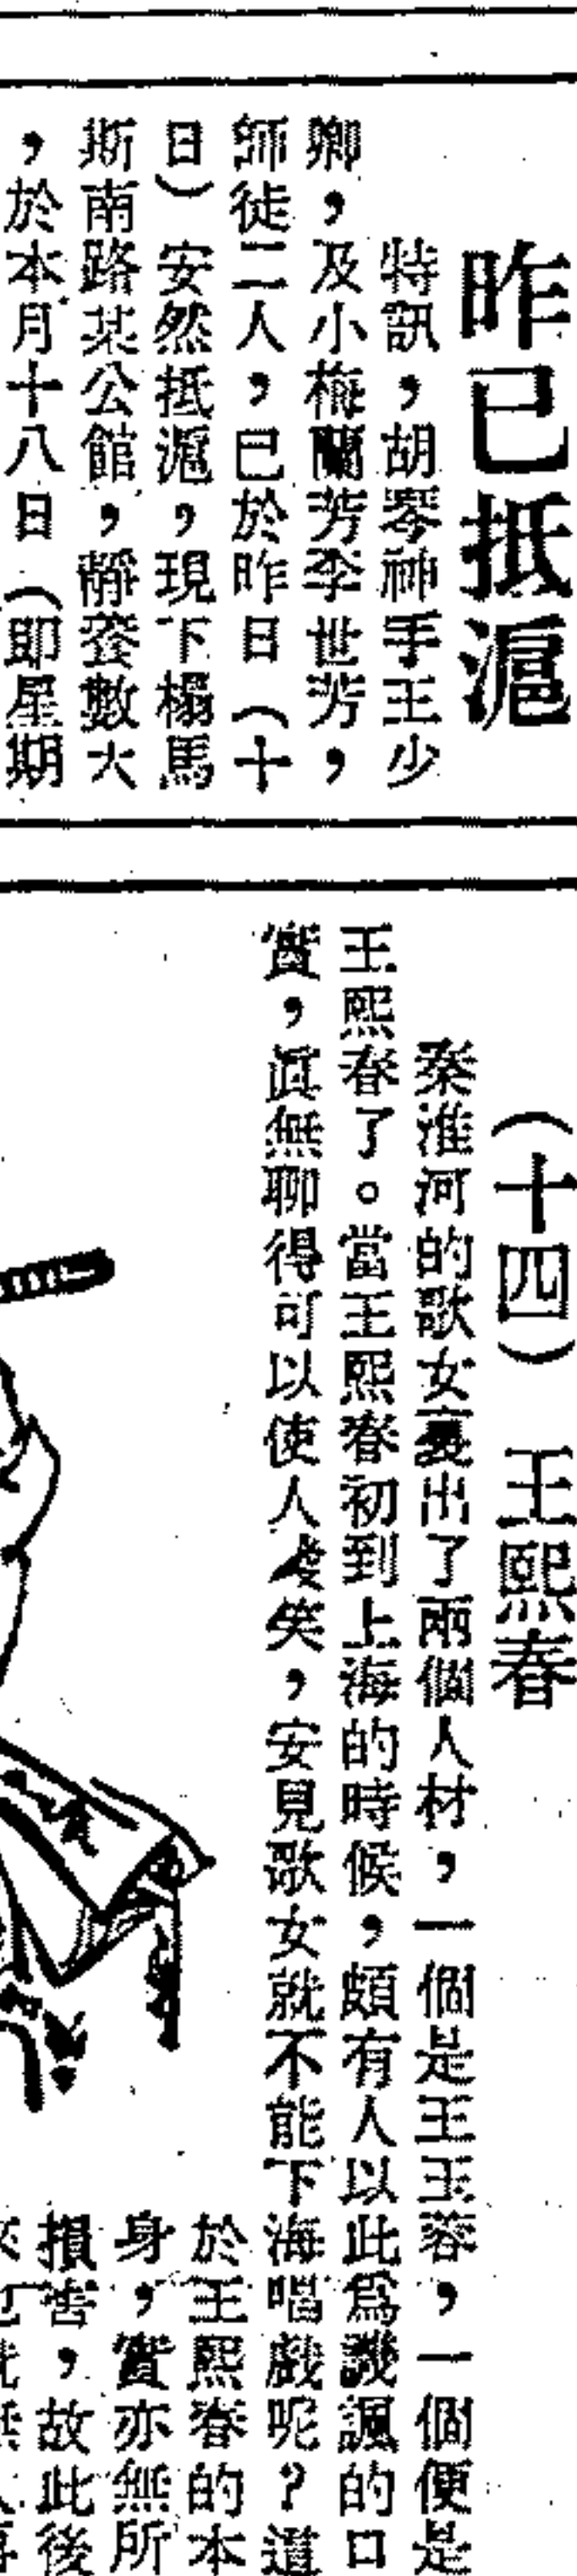 昨已抵滬
特訊，胡琴神手王少
卿，及小梅蘭芳李世芳，
師徒二人，已於昨日（十
日）安然抵滬，現下榻馬
斯南路某公館，靜養數天
，於本月十八日（即星期
（十四）　王熙春
秦淮河的歌女裏出了兩個人材，一個是王玉蓉，一個便是
王熙春了。當王熙春初到上海的時候，頗有人以此爲譏諷的口
實，眞無聊得可以使人笑，安見歌女就不能下海唱戲呢？道
於王熙春的本
身，實亦無所
損害，故此後